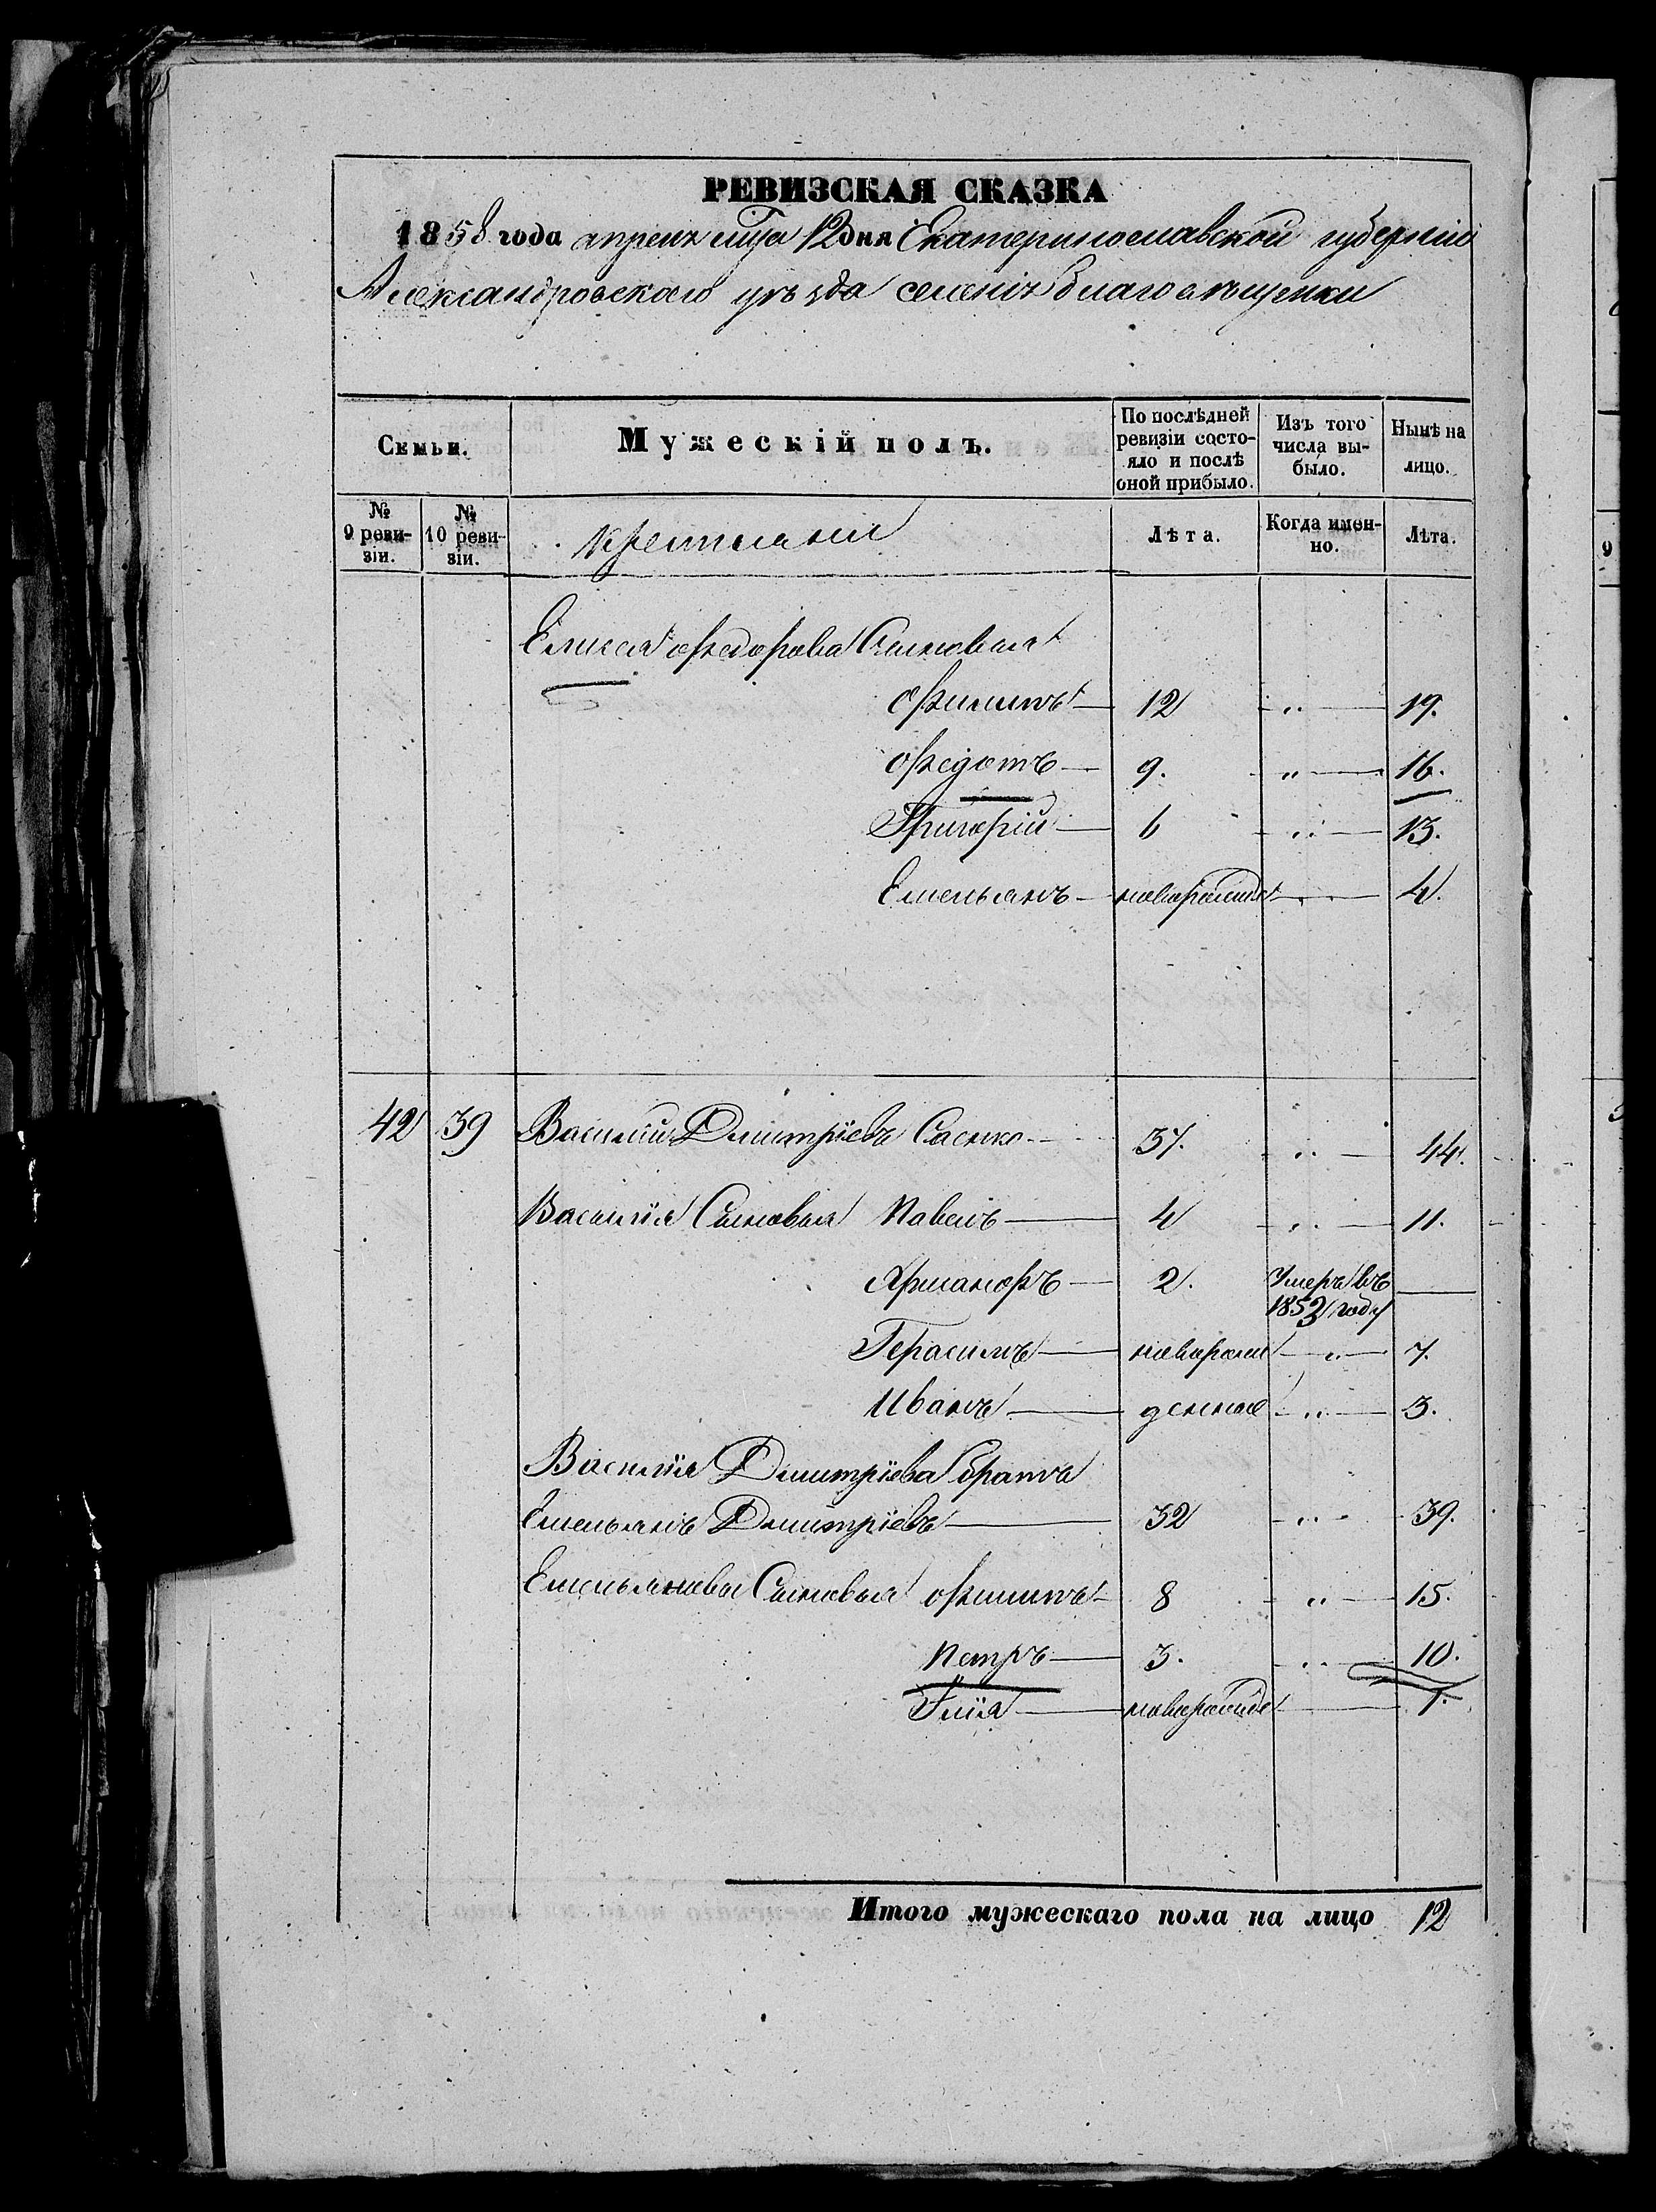 РЕВИЗСКАЯ СКАЗКА
1858 года апреля м̃ца 12 дня Екатеринославской губерніи
Александровского уѣзда селенія Благовѣщенки
Семьи. Мужескій полъ. По послѣдней ревизіи состояло и послѣ оной прибыло. Изъ того числа выбыло. Нынѣ на лицо.
№ 9 ревизіи. № 10 ревизіи. Лѣта. Когда именно. Лѣта.
Елисея Федорова Сыновья
Филипъ 12 „ 19.
Федотъ 9. „ 16.
Григорій 6 „ 13.
Емельянъ новорожде „ 4.
42 39 Василий Дмитріевъ Сасико 37. „ 44.
Василія Сыновья Павелъ 4 „ 11.
2. Умеръ въ
1852 году
Герасимъ новорож „ 7.
Иванъ денные „ 3.
Василія Дмитріева братъ
Емельянъ Дмитріевъ 32 „ 39.
Емельянова Сыновья Филипъ 8 „ 15.
Петръ 3. „ 10.
Илія новорожде 1.
Итого мужескаго пола на лицо 12